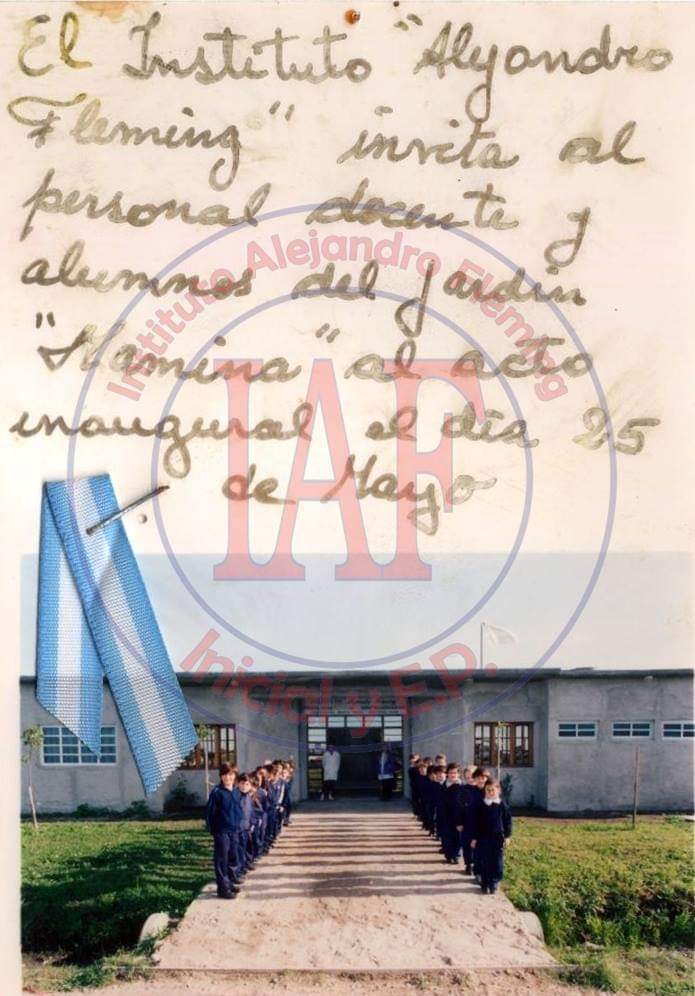 El Instituto "Alejandro
Fleming" invita al
personal docente y
alumnos del jardin
"Mamina" al acto
inaugural el día 25
de Mayo
Intituto Alejandro Fleming
IAF
Inicial y E.P.